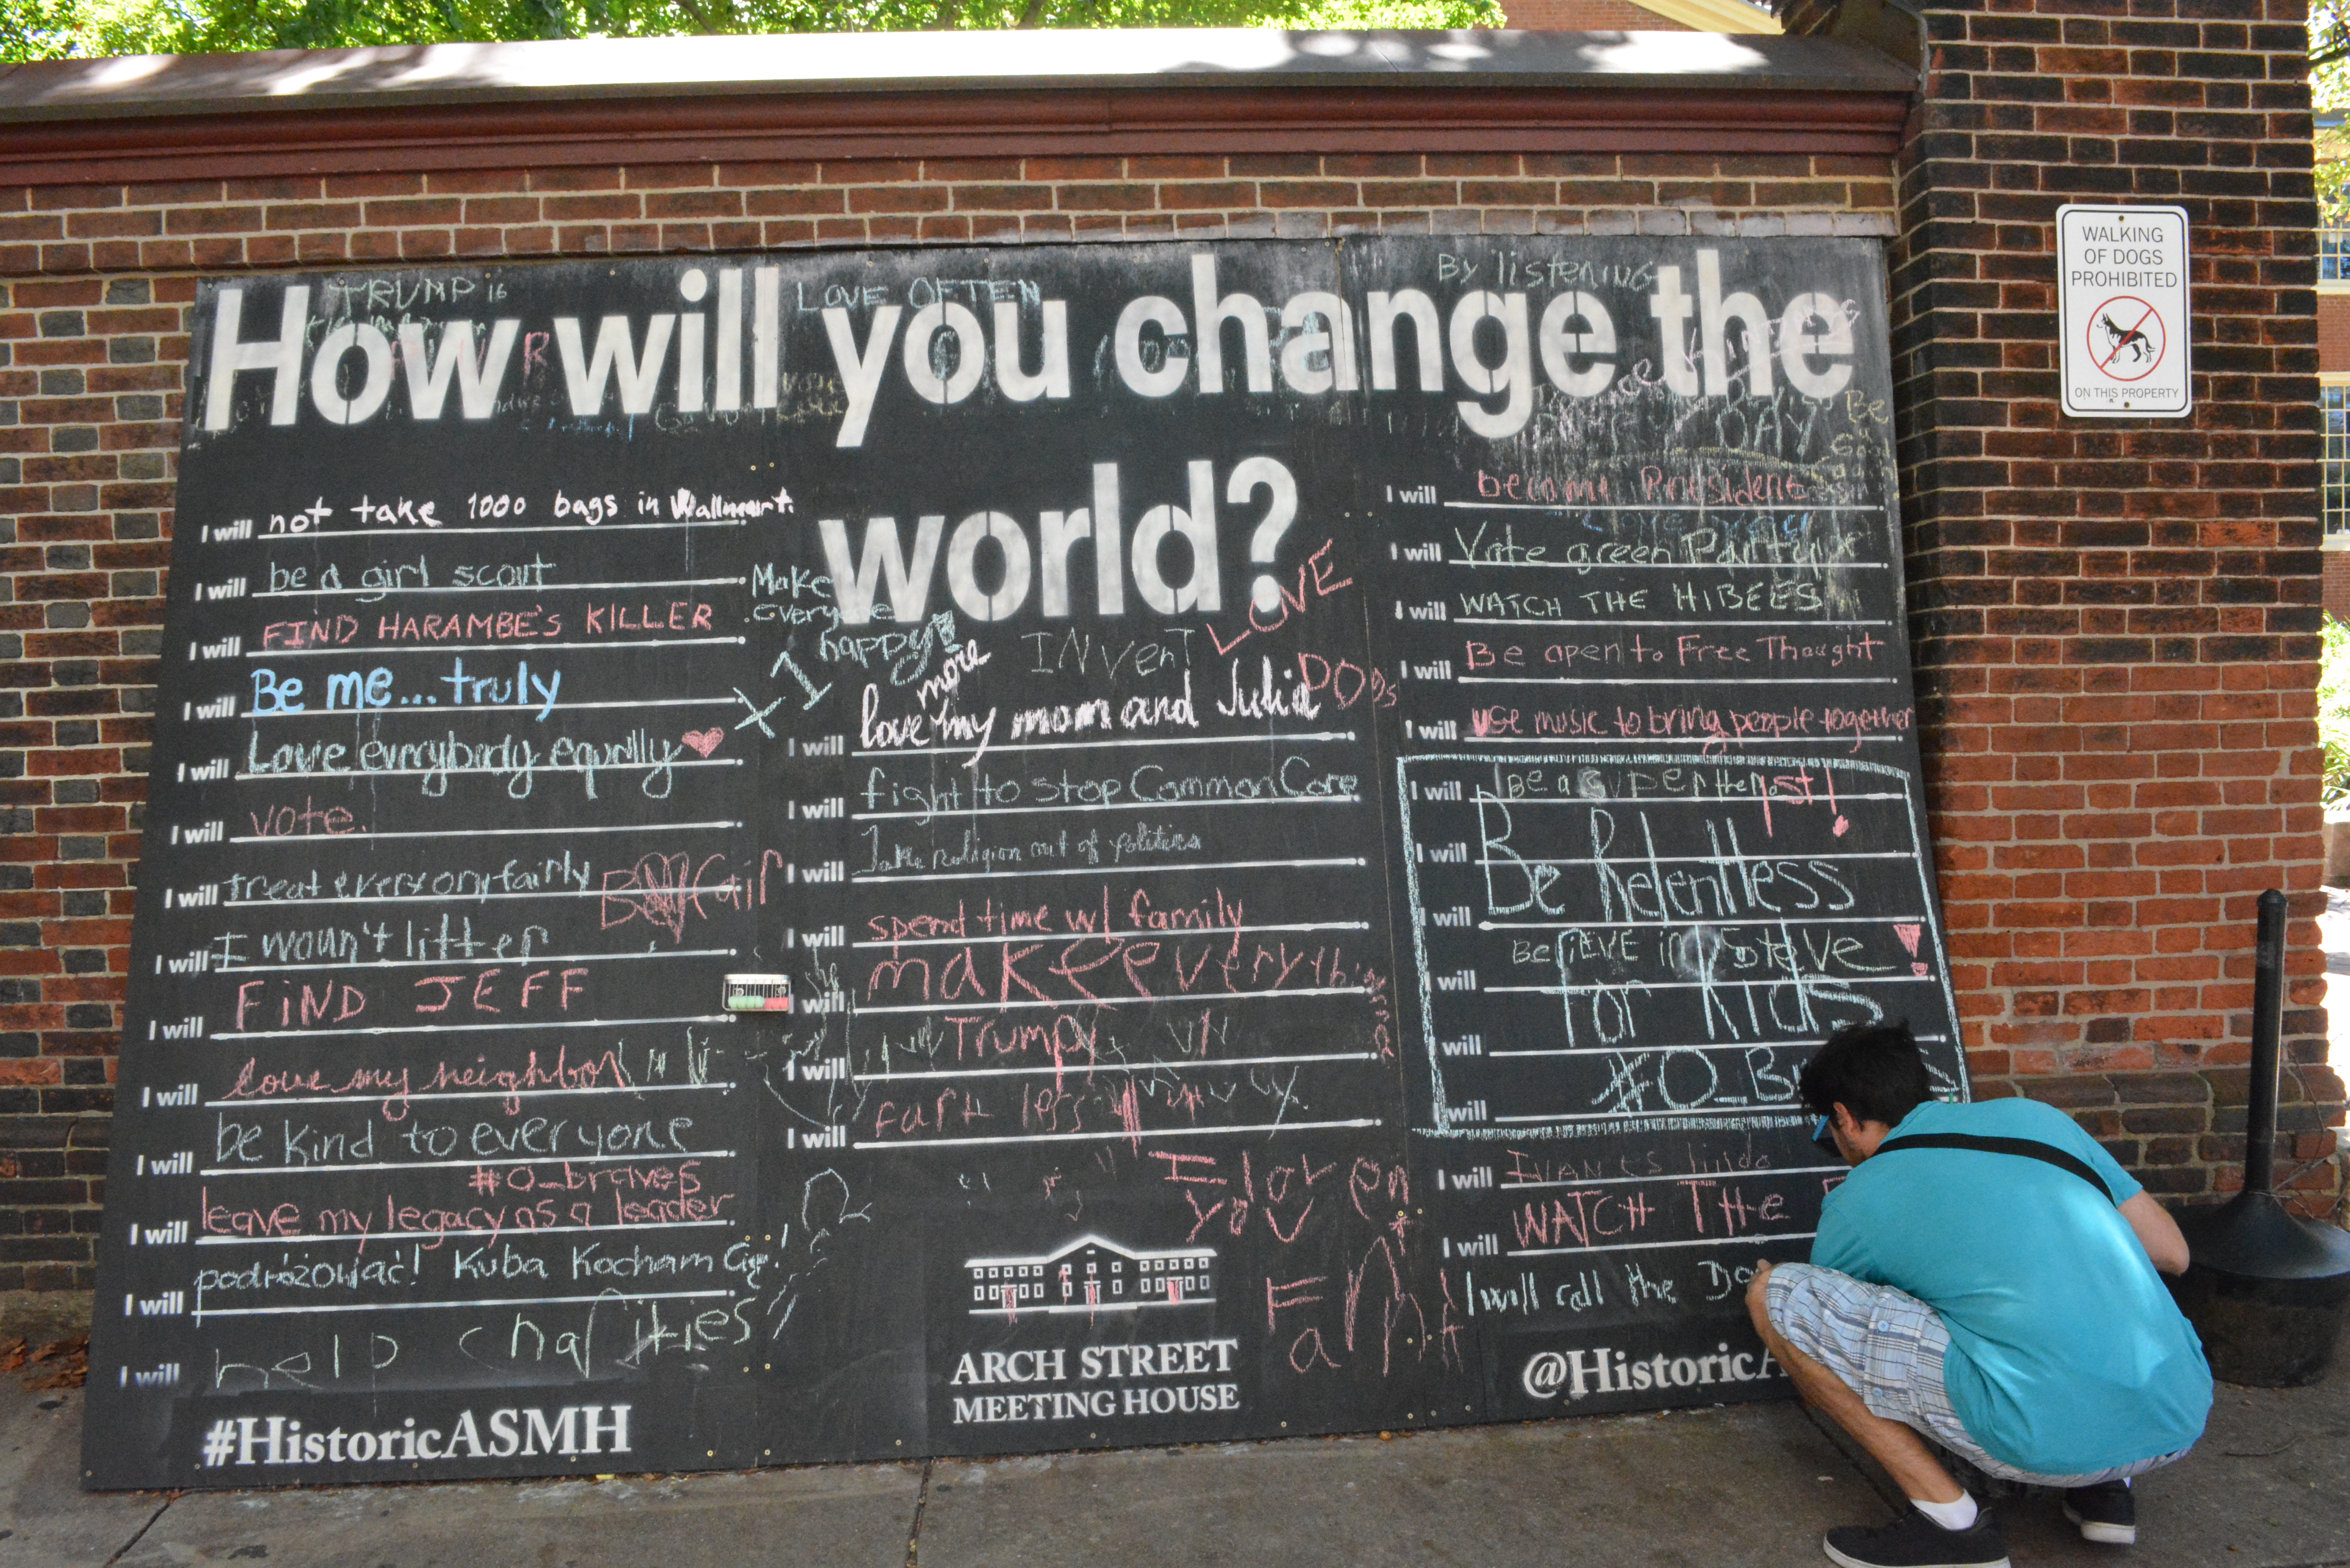 TRUMP 16
LOVE OFTEN
By listening
How will you change the
world?
I will not take 1000 bags in Wallmart.
I will be a girl scout
I will FIND HARAMBE'S KILLER
I will Be me...truly
I will Love everybody equally
I will vote.
I will treat everyony fairly
I will I woun't litter
I will FiND JEFF
I will love my neighbor
I will be kind to everyone
#O_braves
I will leave my legacy as a leader
I will podróżować! Kuba Kocham Cię!
I will help charities
#HistoricASMH
Make
everyone
happy!
x1
INvenT
LOVE
DOgs
more
I will love my mom and Julia
I will fight to stop Common Core
I will Take religion out of politics
I will spend time w/ family
will make everything
I will Trump
I will fart less
I love
you
Fart
ARCH STREET
MEETING HOUSE
I will become President
I will Vote green Party
I will WATCH THE HIBEES
I will Be open to Free Thought
I will use music to bring people together
I will Be a
I will Be Relentless
I will
will BeliEVE in Steve
will for Kids
will #O_B
I will
I will WATCH THE
I will call the
@Historic
WALKING
OF DOGS
PROHIBITED
ON THIS PROPERTY